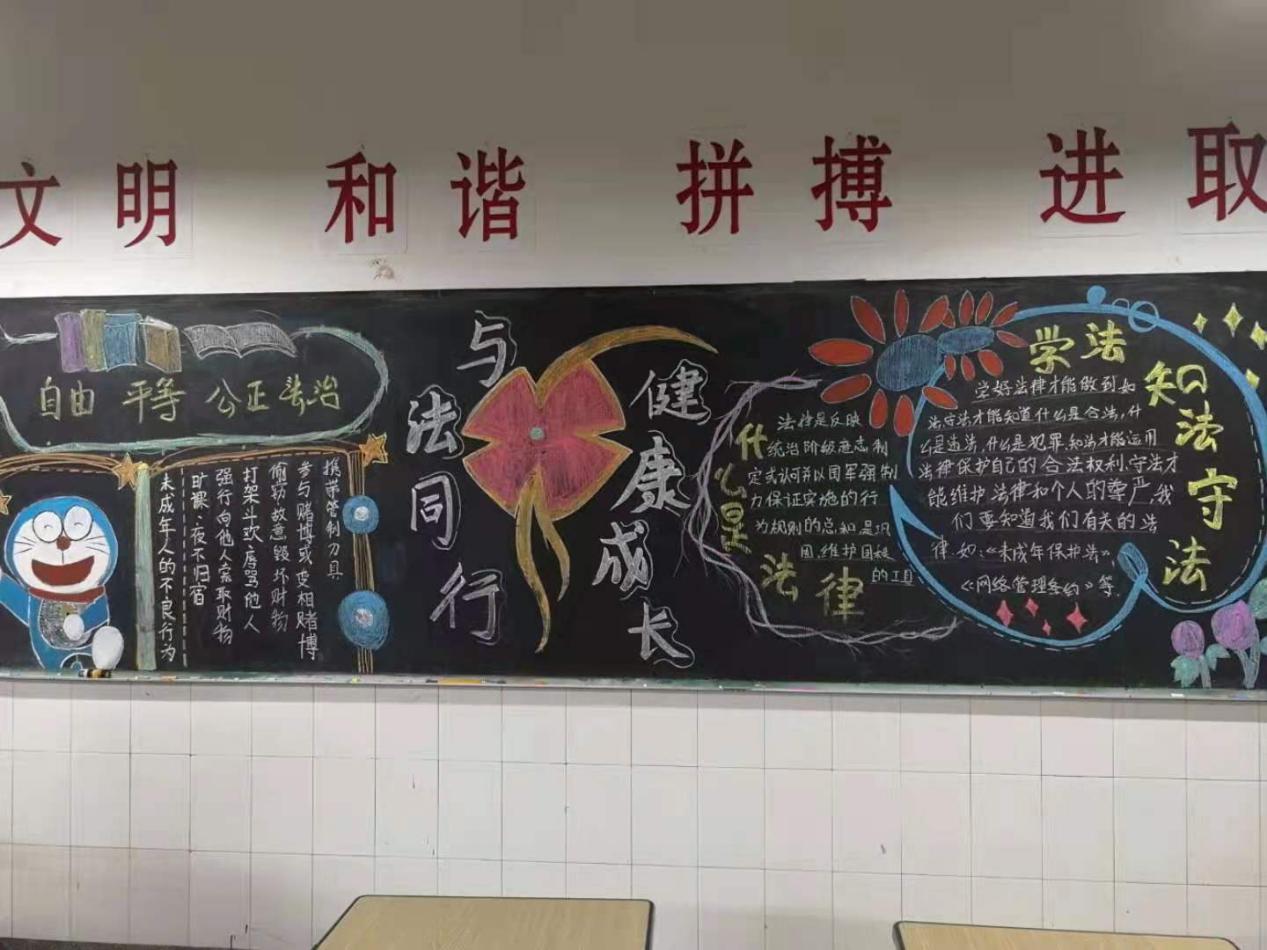 文明 和谐 拼搏 进取
自由 平等 公正 法治
未成年人的不良行为
旷课、夜不归宿
强行向他人索取财物
打架斗欧、辱骂他人
偷窃、故意毁坏财物
参与赌博或变相赌博
携带管制刀具
与法同行
健康成长
什么是法律
法律是反映
统治阶级意志制
定或认可并以国军强制
力保证实施的行
为规则的总和是巩
固、维护国
的工具
学法知法守法
学好法律才能做到知
法守法才能知道什么是合法,什
么是违法,什么是犯罪,知法才能运用
法律保护自己的合法权利.守法才
能维护法律和个人的尊严,我
们要知道我们有关的法
律.如:《未成年保护法》
《网络管理条约》等.